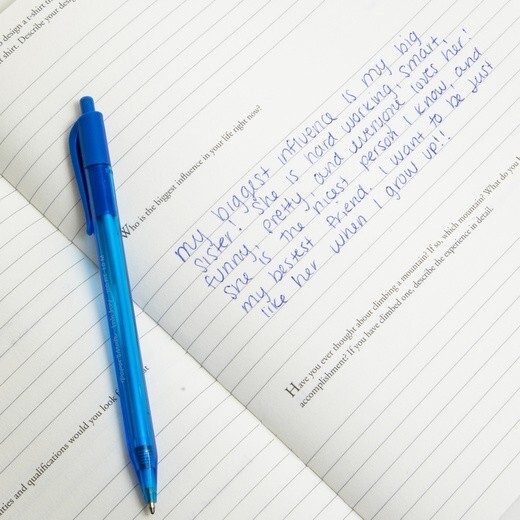 design a t-shirt
shirt. Describe your
Who is the biggest influence in your life right now?
my biggest influence is my big
sister! She is hard working, smart,
funny, pretty, and everyone loves her!
She is the nicest person I know, and
my bestest friend. I want to be just
like her when I grow up!!
Have you ever thought about climbing a mountain? If so, which mountain? What do you
accomplishment? If you have climbed one, describe the experience in detail.
and qualifications would you look